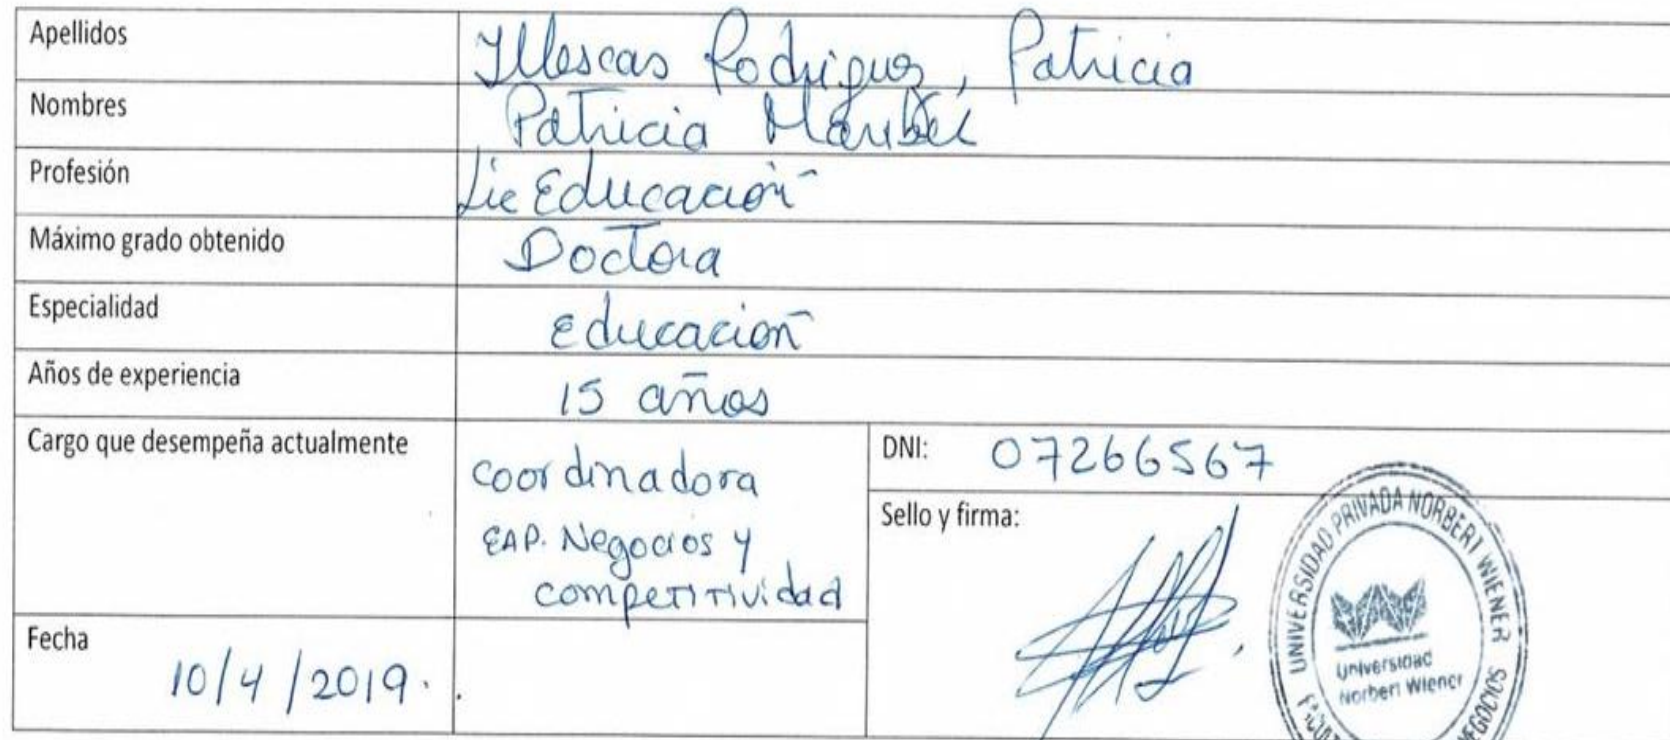 Apellidos
Illescas Rodriguez, Patricia
Nombres
Patricia Maribel
Profesión
Lic Educación
Máximo grado obtenido
Doctora
Especialidad
Educación
Años de experiencia
15 años
Cargo que desempeña actualmente
Coordinadora
EAP. Negocios y
competitividad
DNI: 07266567
Sello y firma:
UNIVERSIDAD PRIVADA NORBERT WIENER
Universidad
Norbert Wiener
NEGOCIOS
Fecha
10/4/2019.